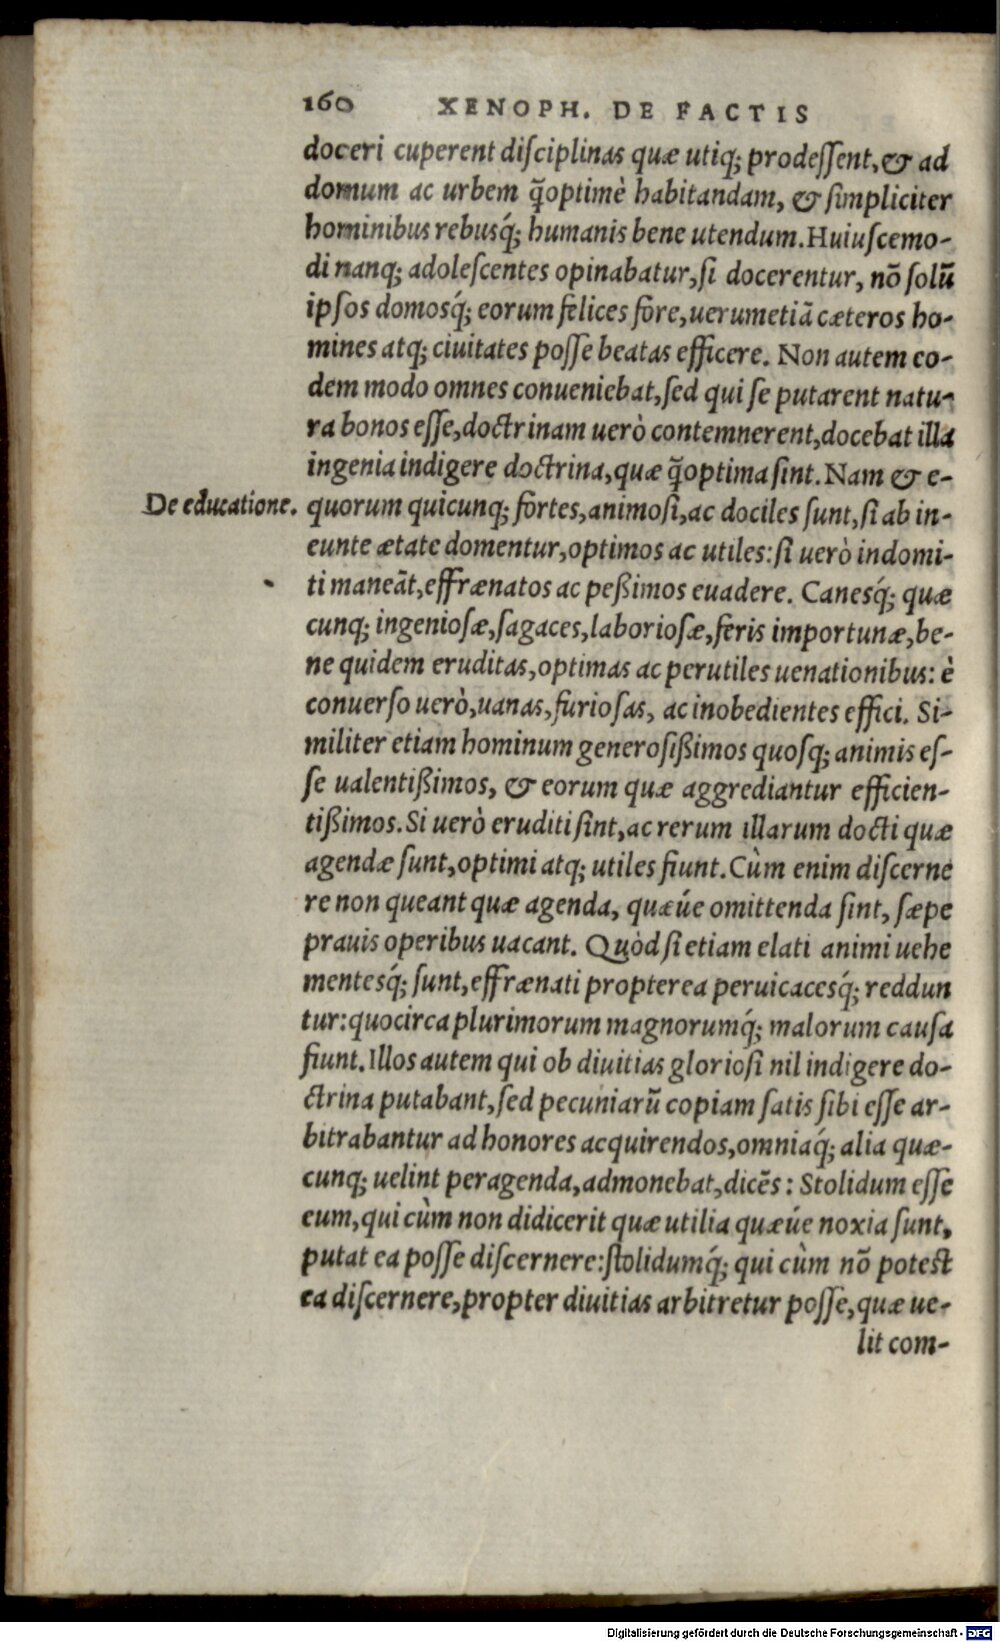 160 XENOPH. DE FACTIS
doceri cuperent diſciplinas quæ utiq; prodeſſent, & ad
domum ac urbem q̃optimè habitandam, & ſimpliciter
hominibus rebusq́; humanis bene utendum. Huiuſcemo-
di nanq; adoleſcentes opinabatur, ſi docerentur, nõ ſolũ
ipſos domosq́; eorum felices fore, uerumetiã cæteros ho-
mines atq; ciuitates poſſe beatas efficere. Non autem eo-
dem modo omnes conueniebat, ſed qui ſe putarent natu-
ra bonos eſſe, doctrinam uerò contemnerent, docebat illa
ingenia indigere doctrina, quæ q̃optima ſint. Nam & e-
De educatione. quorum quicunq; fortes, animoſi, ac dociles ſunt, ſi ab in-
eunte ætate domentur, optimos ac utiles: ſi uerò indomi-
ti maneãt, effrænatos ac peßimos euadere. Canesq́; quæ
cunq; ingenioſæ, ſagaces, laborioſæ, feris importunæ, be-
ne quidem eruditas, optimas ac perutiles uenationibus: è
conuerſo uerò, uanas, furioſas, ac inobedientes effici. Si-
militer etiam hominum generoſißimos quoſq; animis eſ-
ſe ualentißimos, & eorum quæ aggrediantur efficien-
tißimos. Si uerò eruditi ſint, ac rerum illarum docti quæ
agendæ ſunt, optimi atq; utiles fiunt. Cùm enim diſcerne
re non queant quæ agenda, quæúe omittenda ſint, ſæpe
prauis operibus uacant. Quòd ſi etiam elati animi uehe
mentesq́; ſunt, effrænati propterea peruicacesq́; reddun
tur: quocirca plurimorum magnorumq́; malorum cauſa
fiunt. Illos autem qui ob diuitias glorioſi nil indigere do-
ctrina putabant, ſed pecuniarũ copiam ſatis ſibi eſſe ar-
bitrabantur ad honores acquirendos, omniaq́; alia quæ-
cunq; uelint peragenda, admonebat, dicẽs: Stolidum eſſe
eum, qui cùm non didicerit quæ utilia quæúe noxia ſunt,
putat ea poſſe diſcernere: ſtolidumq́; qui cùm nõ poteſt
ea diſcernere, propter diuitias arbitretur poſſe, quæ ue-
lit com-
Digitalisierung gefördert durch die Deutsche Forschungsgemeinschaft - DFG